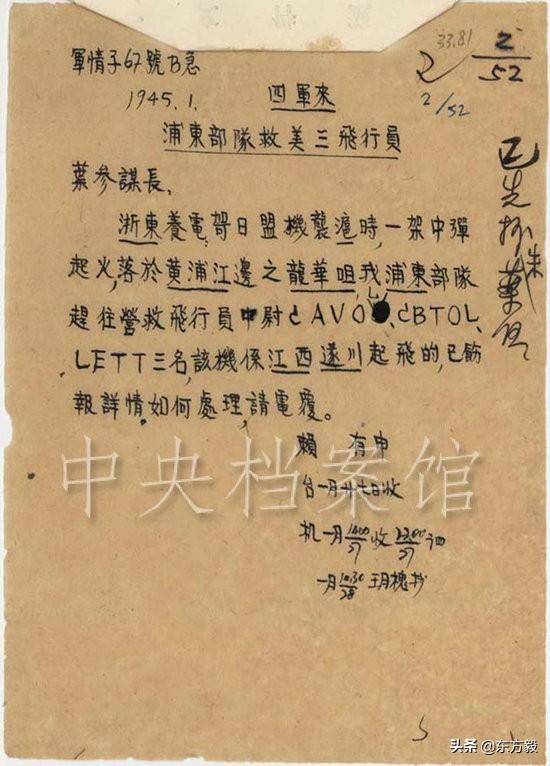 軍情子67號B急
33.81
2
2/52
2/52
1945.1.
四軍來
浦東部隊救美三飛行員
葉參謀長、
浙東養電哿日盟機襲滬時,一架中彈
起火,落於黄浦江邊之龍華咀,我浦東部隊
趕往營救飛行員中尉CAVO、CBTOL、
LETT三名,該機係江西遂川起飛的,已飭
報詳情,如何處理,請電覆。
賴 有申
台一月廿七日收
机一月1400/27收2200/27
一月10.30/28 抄
已先抄
中央档案馆
头条@东方毅